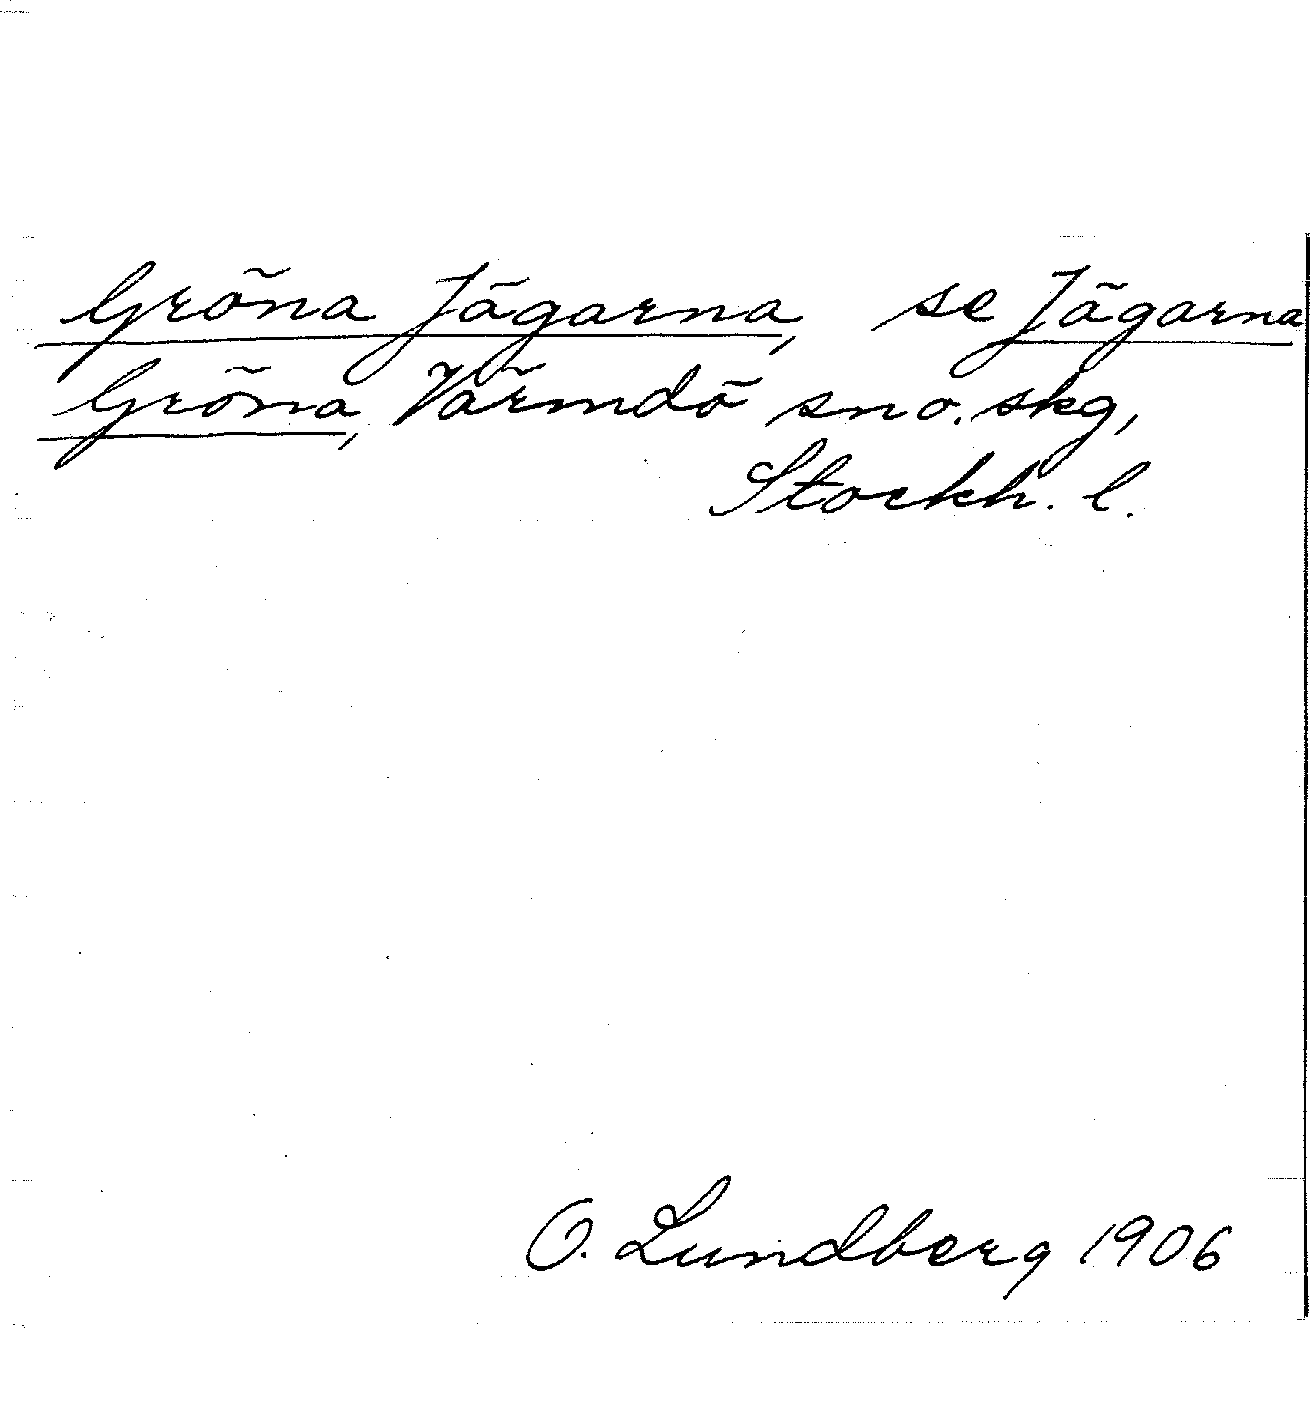 Gröna Jägarna, se Jägarna
Gröna, Värmdö sno. skg,
Stockh. l.
O. Lundberg 1906